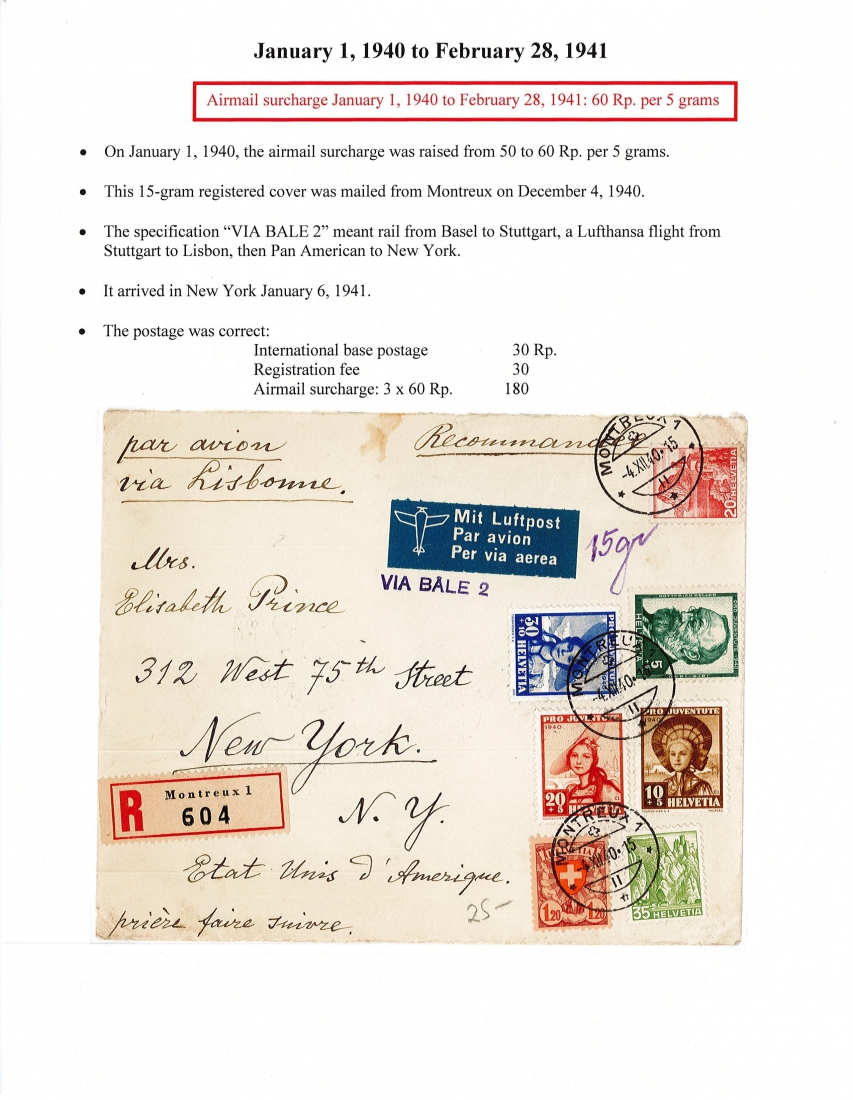 January 1, 1940 to February 28, 1941
Airmail surcharge January 1, 1940 to February 28, 1941: 60 Rp. per 5 grams
• On January 1, 1940, the airmail surcharge was raised from 50 to 60 Rp. per 5 grams.
• This 15-gram registered cover was mailed from Montreux on December 4, 1940.
• The specification “VIA BALE 2” meant rail from Basel to Stuttgart, a Lufthansa flight from
Stuttgart to Lisbon, then Pan American to New York.
• It arrived in New York January 6, 1941.
• The postage was correct:
International base postage 30 Rp.
Registration fee 30
Airmail surcharge: 3 x 60 Rp. 180
par avion
via Lisbonne.
MONTREUX 1
-4.XII.40.15
II
20 HELVETIA
Mit Luftpost
Par avion
Per via aerea
15gr
VIA BÂLE 2
Mrs.
Elisabeth Prince
312 West 75th Street
New York.
N. Y.
Etat Unis d'Amerique.
prière faire suivre.
R
Montreux 1
604
25-
30
+10
HELVETIA
PRO JUVENTUTE
GOTTFRIED KELLER
HELVETIA
5
MONTREUX 1
-4.XII.40.
II
PRO JUVENTUTE
1940
20
+5
HELVETIA
PRO JUVENTUTE
1940
10
+5
HELVETIA
MONTREUX 1
4.XII.40.15
II
1.20
1.20
35 HELVETIA